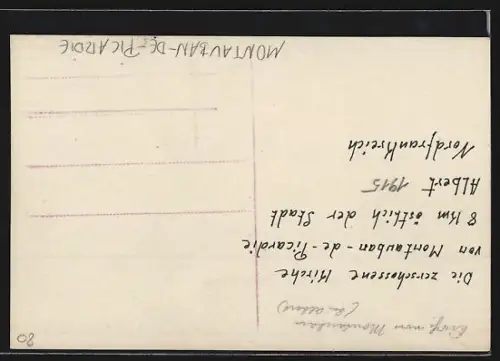 Die zerschossene Kirche
von Montauban-de-Picardie
8 km östlich der Stadt
Albert 1915
Nordfrankreich
MONTAUBAN-DE-PICARDIE
von Montauban
80